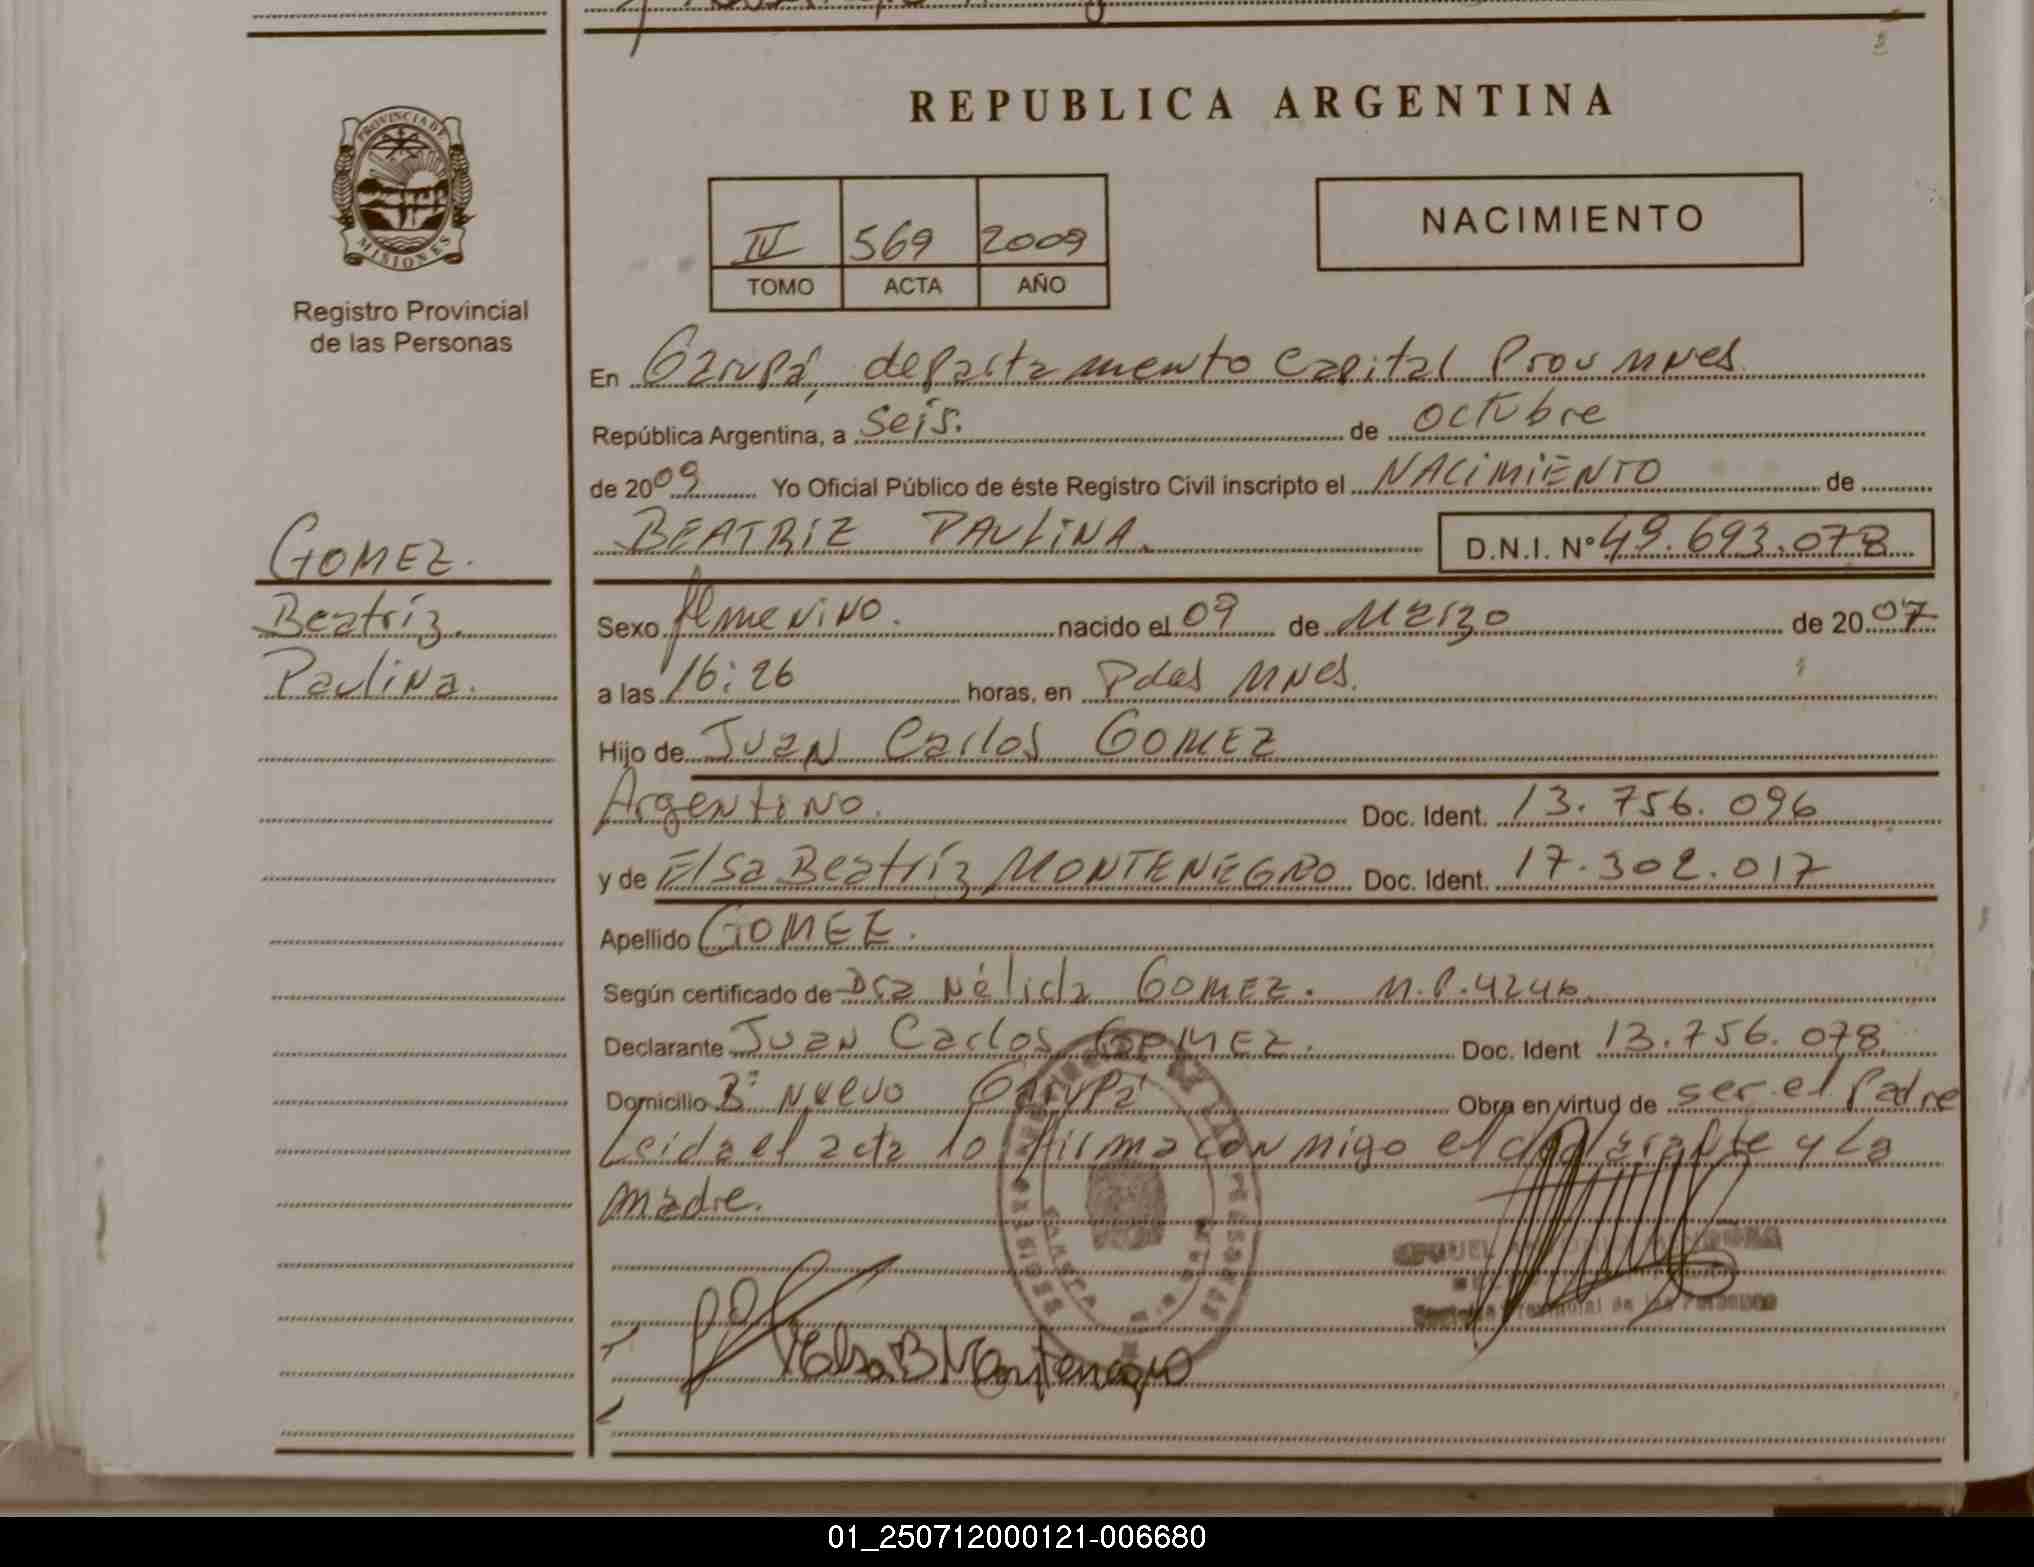 PROVINCIA DE
MISIONES
Registro Provincial
de las Personas
REPUBLICA ARGENTINA
IV 569 2009
TOMO ACTA AÑO
NACIMIENTO
En Garupá, departamento Capital Prov Mnes
República Argentina, a seis. de octubre
de 2009 Yo Oficial Público de éste Registro Civil inscripto el NACIMIENTO de
GOMEZ.
BEATRIZ PAULINA. D.N.I. Nº 49.693.078
Beatriz.
Sexo femenino. nacido el 09 de Marzo de 2007
Paulina.
a las 16:26 horas, en Pdas Mnes.
Hijo de Juan Carlos GOMEZ
Argentino. Doc. Ident. 13.756.096
y de Elsa Beatriz MONTENEGRO Doc. Ident. 17.302.017
Apellido GOMEZ.
Según certificado de Dra Nélida GOMEZ. M.P.4246
Declarante Juan Carlos GOMEZ. Doc. Ident 13.756.078
Domicilio Bº Nuevo Garupá Obra en virtud de ser el Padre
Leida el acta lo firma conmigo el declarante y La
madre.
Elsa B Montenegro
01_250712000121-006680